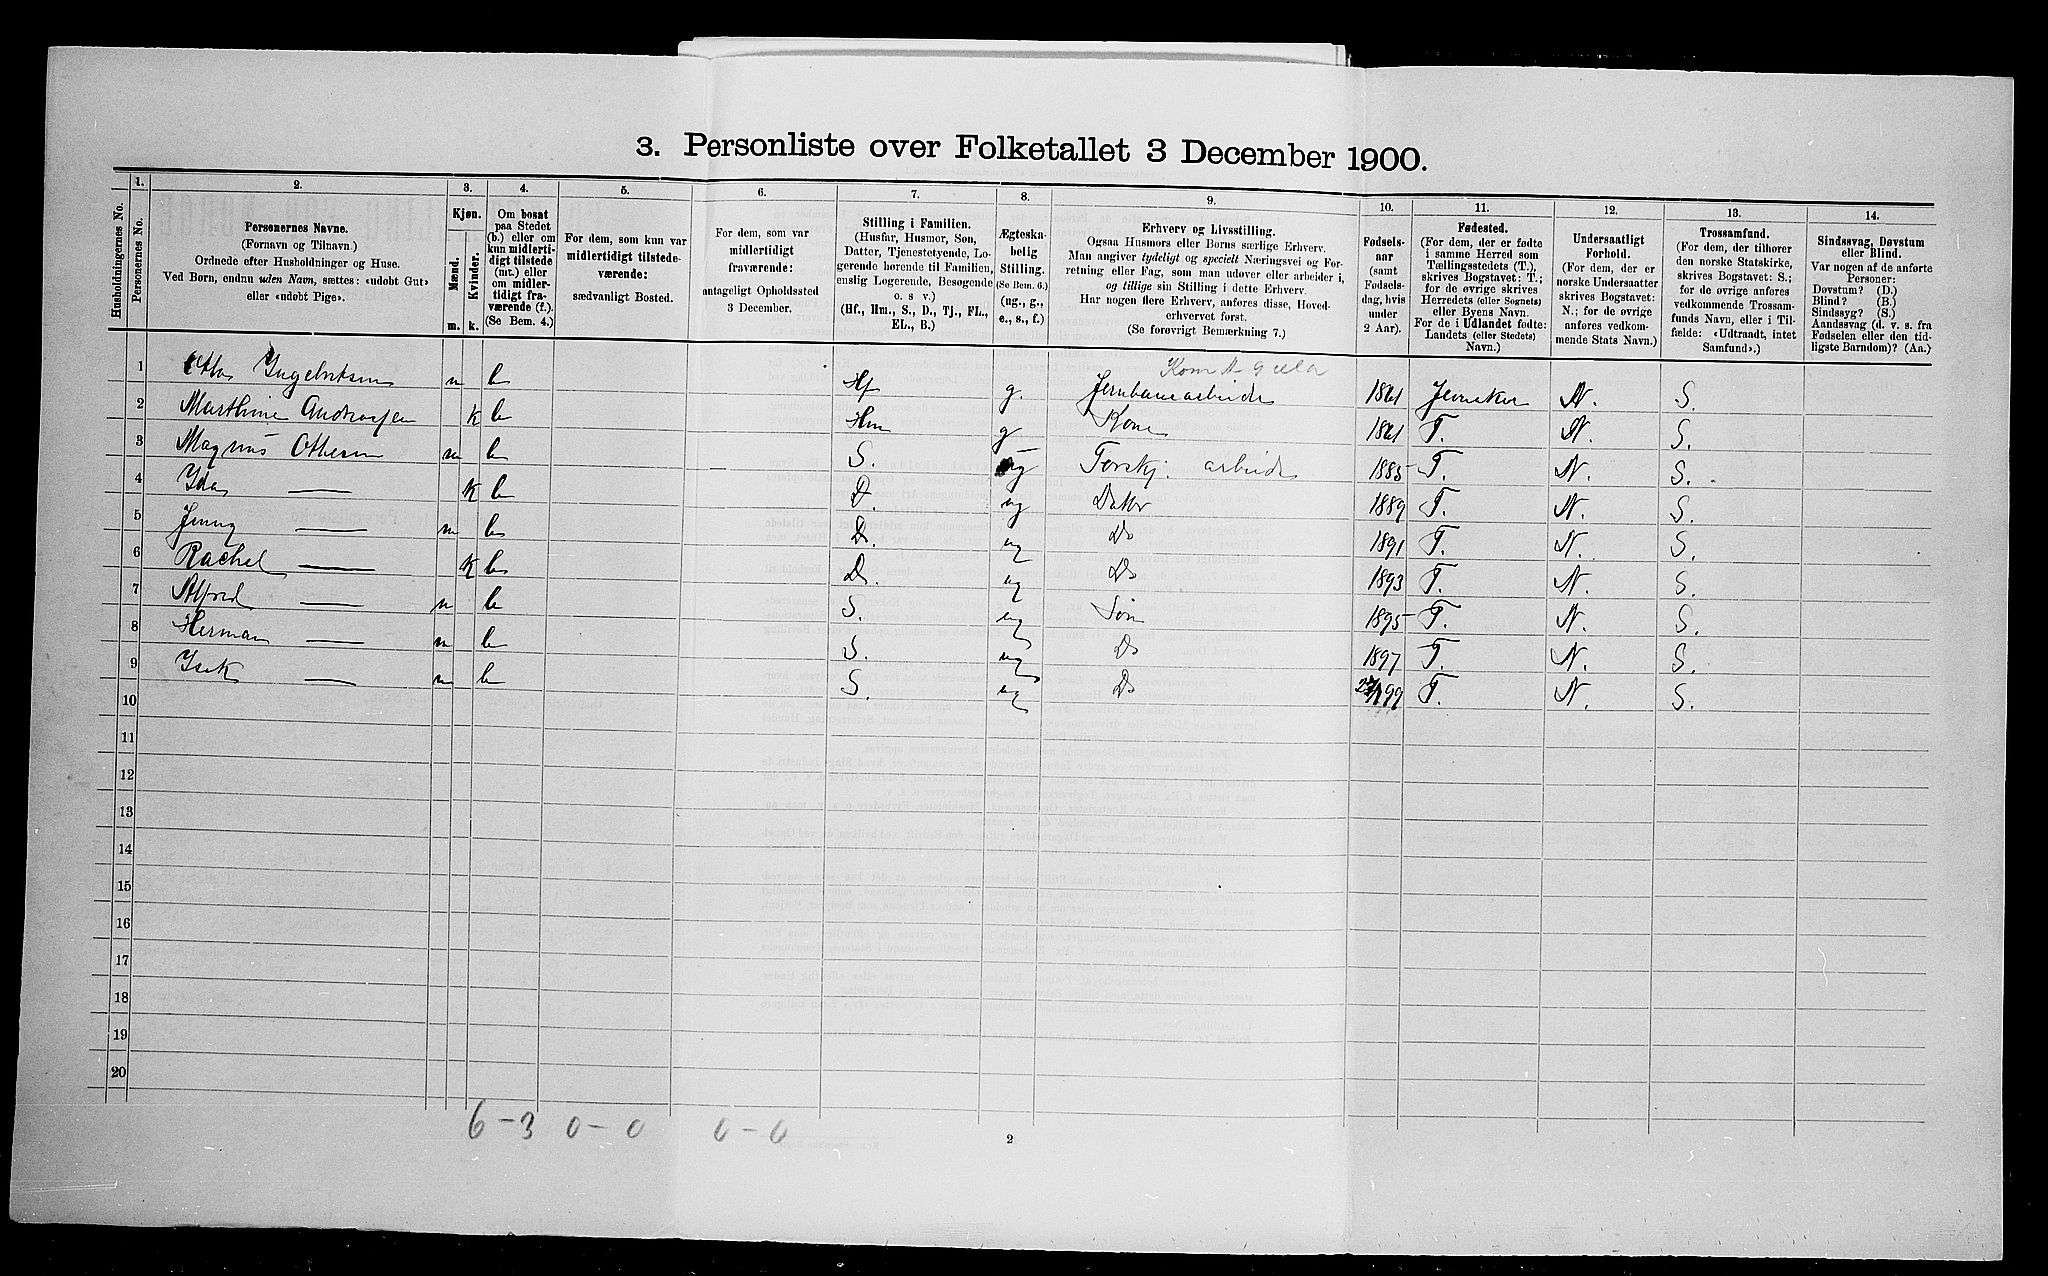 3. Personliste over Folketallet 3 December 1900.
Husholdningernes No.
1. Personernes No.
2. Personernes Navne. (Fornavn og Tilnavn.) Ordnede efter Husholdninger og Huse. Ved Børn, endnu uden Navn, sættes: «udøbt Gut» eller «udøbt Pige».
3. Kjøn. Mænd. m. Kvinder. k.
4. Om bosat paa Stedet (b.) eller om kun midlertidigt tilstede (mt.) eller om midlertidigt fraværende (f.). (Se Bem. 4.)
5. For dem, som kun var midlertidigt tilstedeværende: sædvanligt Bosted.
6. For dem, som var midlertidigt fraværende: antageligt Opholdssted 3 December.
7. Stilling i Familien. (Husfar, Husmor, Søn, Datter, Tjenestetyende, Logerende hørende til Familien, enslig Logerende, Besøgende o. s v.) (Hf., Hm., S., D., Tj., FL., EL., B.)
8. Ægteskabelig Stilling. (Se Bem. 6.) (ug., g., e., s., f.)
9. Erhverv og Livsstilling. Ogsaa Husmors eller Børns særlige Erhverv. Man angiver tydeligt og specielt Næringsvei og Forretning eller Fag, som man udøver eller arbeider i, og tillige sin Stilling i dette Erhverv. Har nogen flere Erhverv, anføres disse, Hovederhvervet først. (Se forøvrigt Bemærkning 7.)
10. Fødselsaar (samt Fødselsdag, hvis under 2 Aar).
11. Fødested. (For dem, der er fødte i samme Herred som Tællingsstedets (T.), skrives Bogstavet: T.; for de øvrige skrives Herredets (eller Sognets) eller Byens Navn. For de i Udlandet fødte: Landets (eller Stedets) Navn.)
12. Undersaatligt Forhold. (For dem, der er norske Undersaatter skrives Bogstavet: N.; for de øvrige anføres vedkommende Stats Navn.)
13. Trossamfund. (For dem, der tilhører den norske Statskirke, skrives Bogstavet: S.; for de øvrige anføres vedkommende Trossamfunds Navn, eller i Tilfælde: «Udtraadt, intet Samfund».)
14. Sindssvag, Døvstum eller Blind. Var nogen af de anførte Personer: Døvstum? (D.) Blind? (B.) Sindssyg? (S.) Aandssvag (d. v. s. fra Fødselen eller den tidligste Barndom)? (Aa.)
1 Otto Ingebretsen m b Hf g. Jernbanearbeider 1861 Jevnaker N. S.
2 Marthine Andreasen k b Hm g Kone 1861 T. N. S.
3 Magnus Othesen m b S. ug arbeider 1885 T. N. S.
4 Ida — k b D. ug Datter 1889 T. N. S.
5 Jenny — m b D. ug Do 1891 T. N. S.
6 Rachel — k b D. ug Do 1893 T. N. S.
7 Alfred — m b S. ug Søn 1895 T. N. S.
8 Herman — m b S. ug Do 1897 T. N. S.
9 Isak — m b S. ug Do 99 T. N. S.
10
11
12
13
14
15
16
17
18
19
20
6 – 3 0 – 0 0 – 0
2